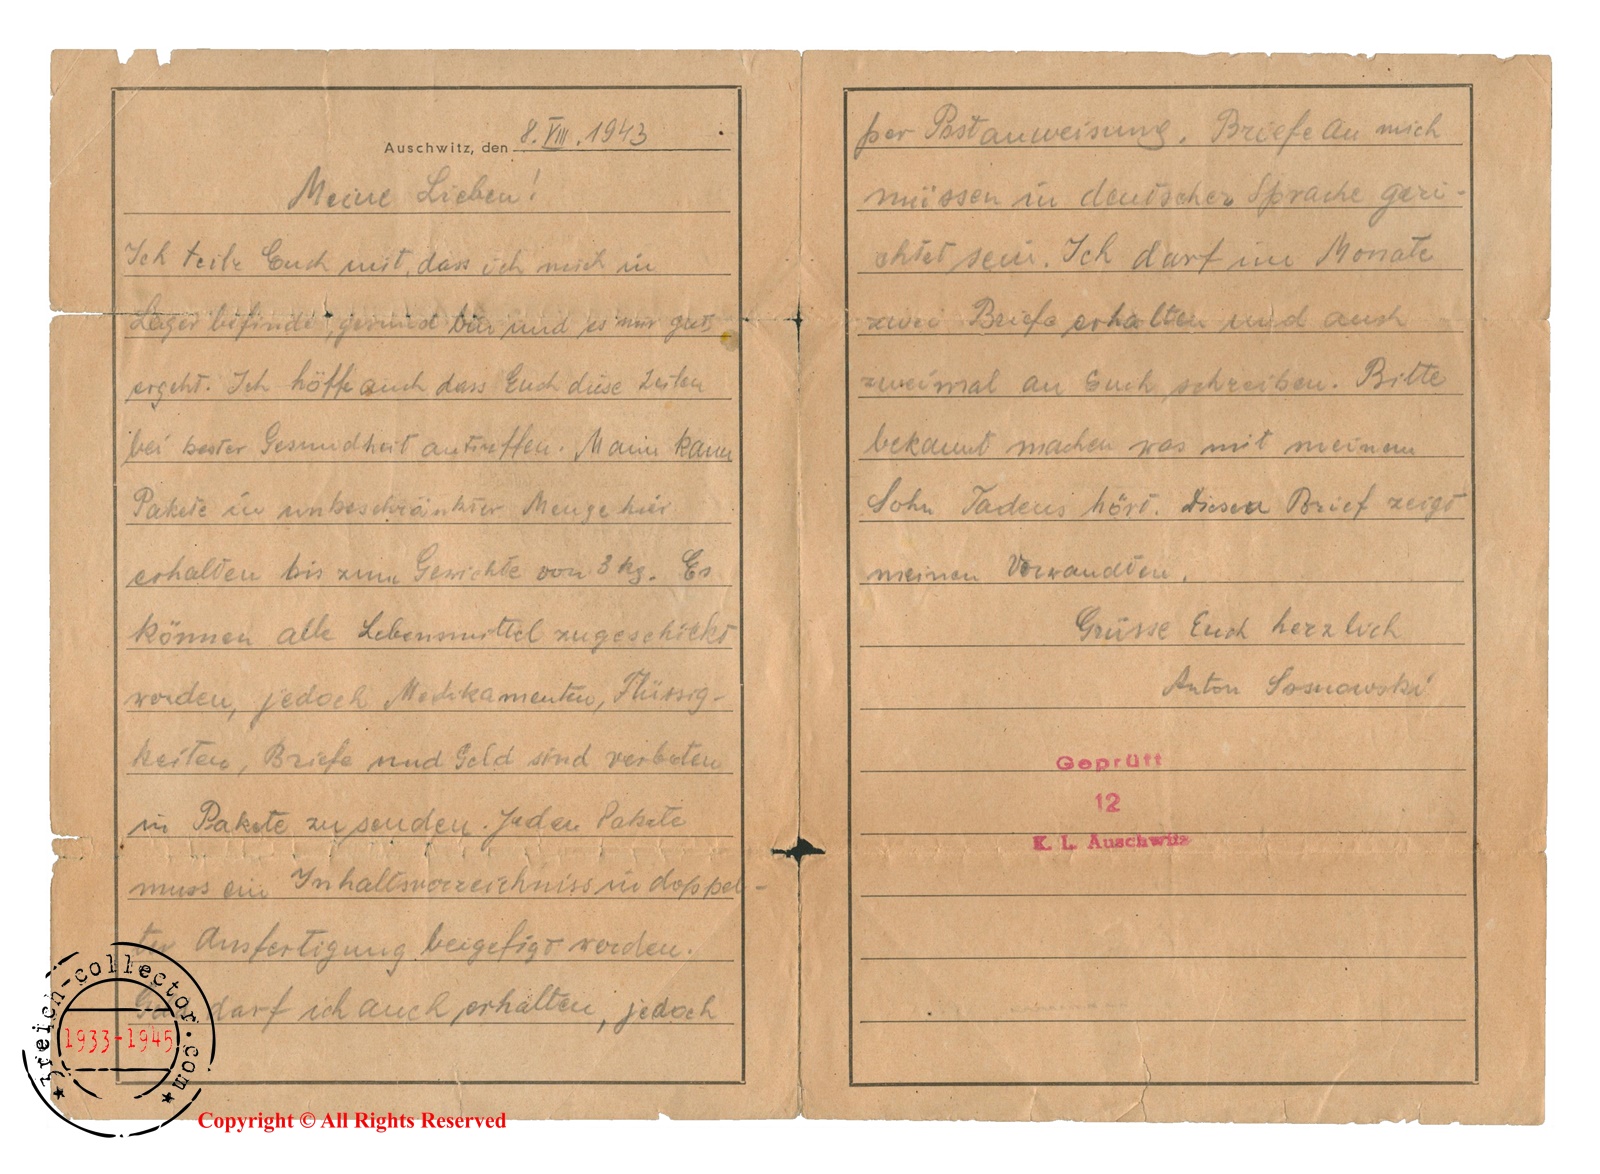 Auschwitz, den 8. VIII. 1943
Meine Lieben!
Ich teile Euch mit, dass ich mich in
Lager befinde, gesund bin und es mir gut
ergeht. Ich höffe auch dass Euch diese Zeilen
bei bester Gesundheit antreffen. Mann kann
Pakete in unbeschränkter Menge hier
erhalten bis zum Gewichte von 3 kg. Es
können alle Lebensmittel zugeschickt
werden, jedoch Medikamenten, Flüssig-
keiten, Briefe und Geld sind verboten
in Pakete zu senden. Jeden Pakete
muss ein Inhaltsverzeichniss in doppel-
ter Ausfertigung beigefigt werden.
Geld darf ich auch erhalten, jedoch
per Postanweisung. Briefe an mich
müssen in deutscher Sprache geri-
chtet sein. Ich darf im Monate
zwei Briefe erhalten und auch
zweimal an Euch schreiben. Bitte
bekannt machen was mit meinem
Sohn Tadeus hört. Diesen Brief zeigt
meinen Verwandten.
Grüsse Euch herzlich
Anton Sosnowski
Geprüft
12
K. L. Auschwitz
3reich-collector.com
1933-1945
Copyright © All Rights Reserved